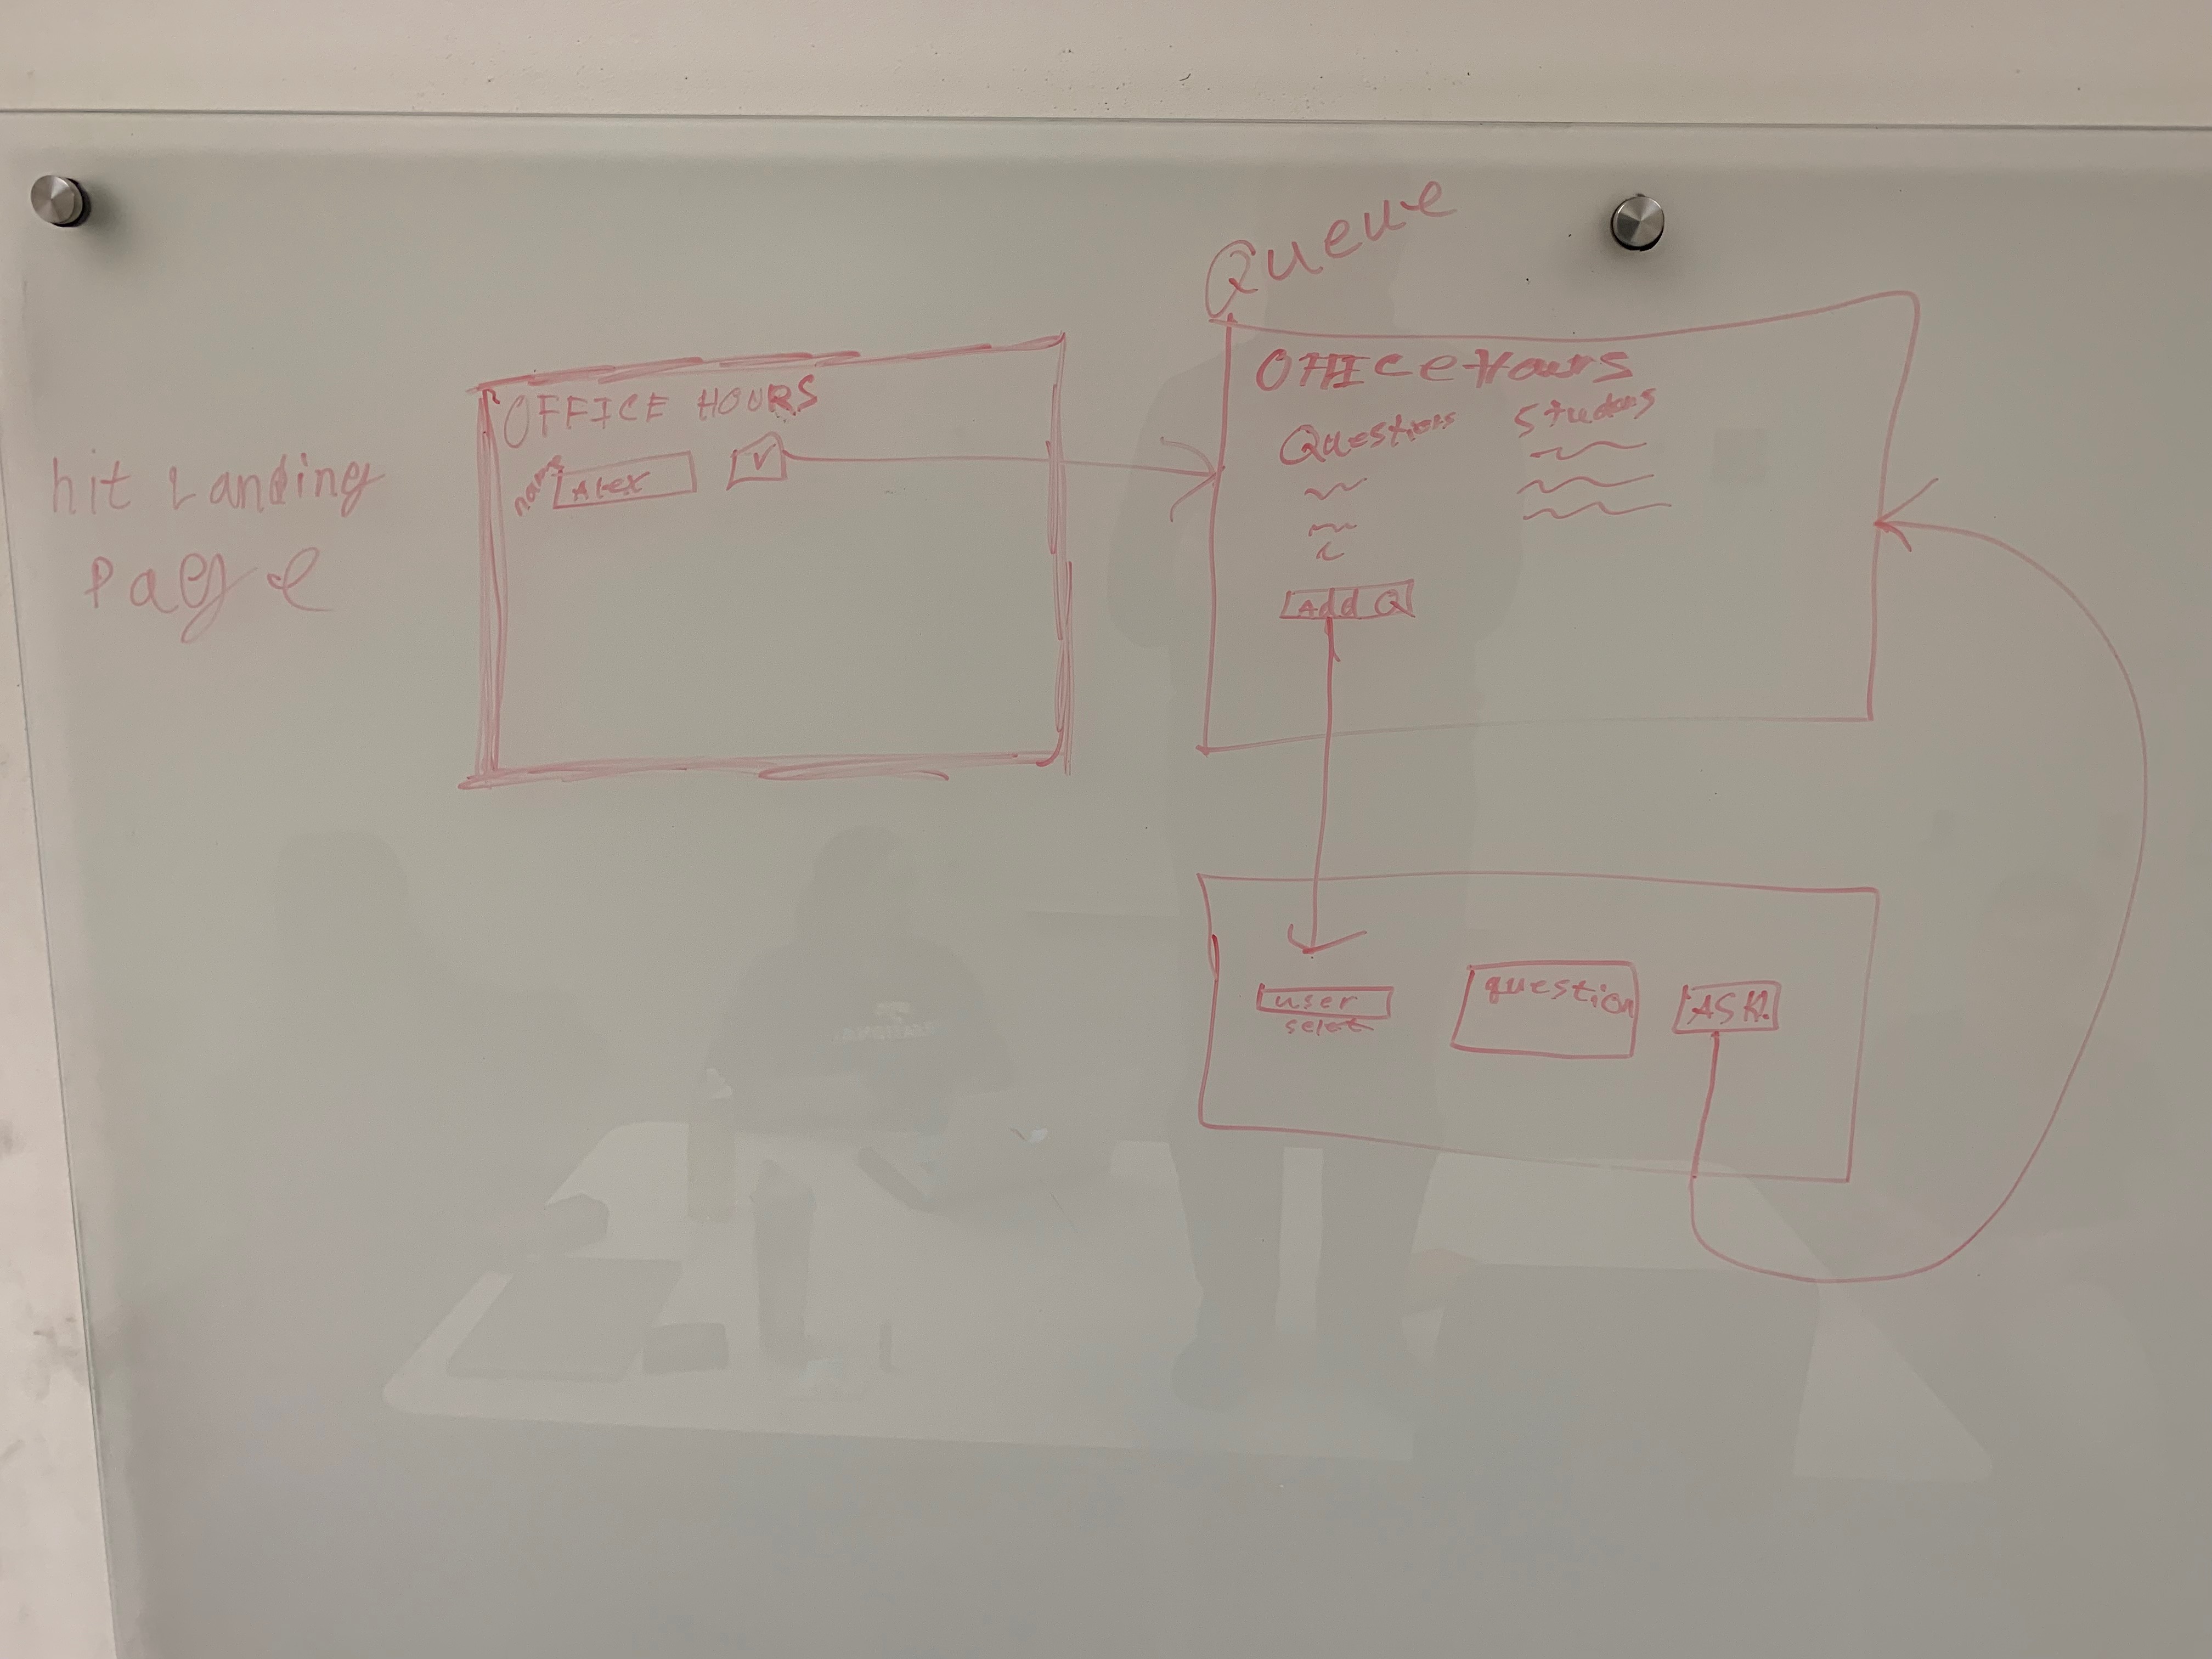 Queue
hit Landing
Page
OFFICE HOURS
name
Alex
Office Hours
Questions
Students
Add Q
user
select
question
ASK